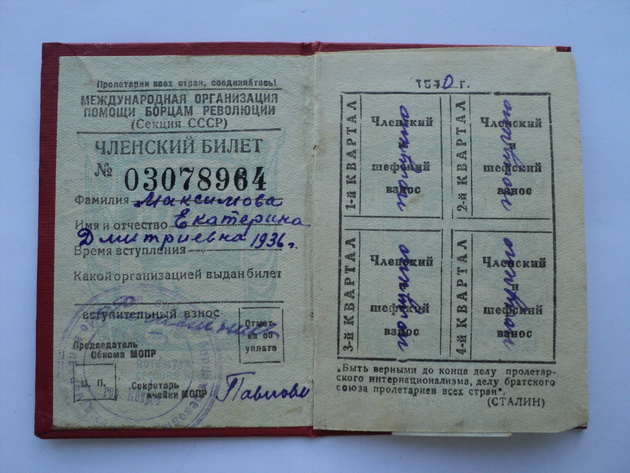 Пролетарии всех стран, соединяйтесь!
МЕЖДУНАРОДНАЯ ОРГАНИЗАЦИЯ
ПОМОЩИ БОРЦАМ РЕВОЛЮЦИИ
(Секция СССР)
ЧЛЕНСКИЙ БИЛЕТ
№ 03078964
Фамилия Максимова
Имя и отчество Екатерина
Дмитриевна 1936 г.
Время вступления
Какой организацией выдан билет
вступительный взнос
Отмет-
ка об
уплате
Председатель
Обкома МОПР
М. П.
Секретарь
ячейки МОПР
г.
1-й КВАРТАЛ
Членский
и
шефский
взнос
2-й КВАРТАЛ
Членский
и
шефский
взнос
3-й КВАРТАЛ
Членский
и
шефский
взнос
4-й КВАРТАЛ
Членский
и
шефский
взнос
„Быть верными до конца делу пролетар-
ского интернационализма, делу братского
союза пролетариев всех стран".
(СТАЛИН)